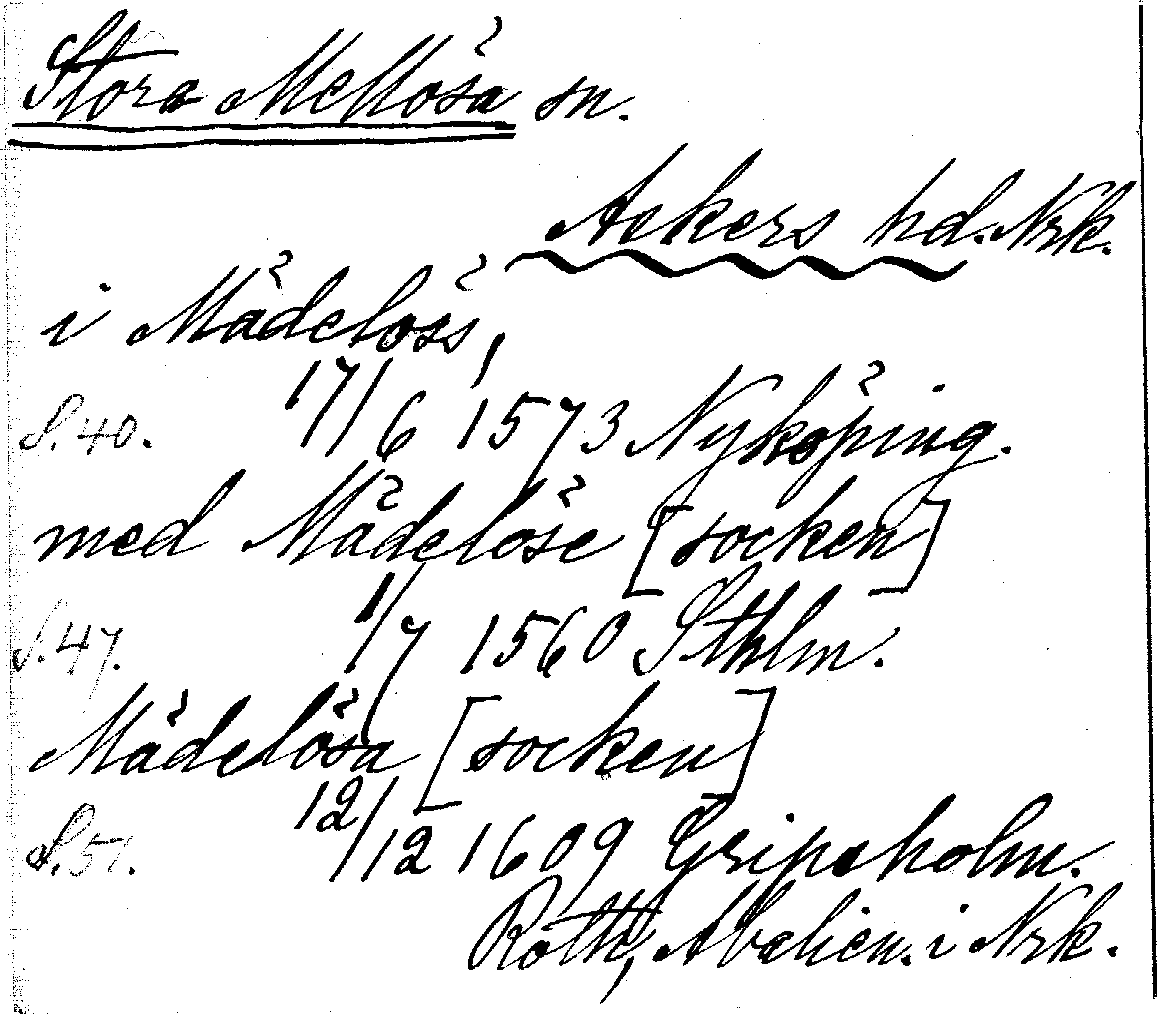 Stora Mellösa sn.
Askers hd. Nrk.
i Mädelöss,
S.40. 17/6 1573 Nyköping.
med Mädelöse [socken]
S.47. 1/7 1560 Sthlm.
Mädelösa [socken]
S.51. 12/12 1609 Gripsholm.
Roth, Abalien. i Nrk.